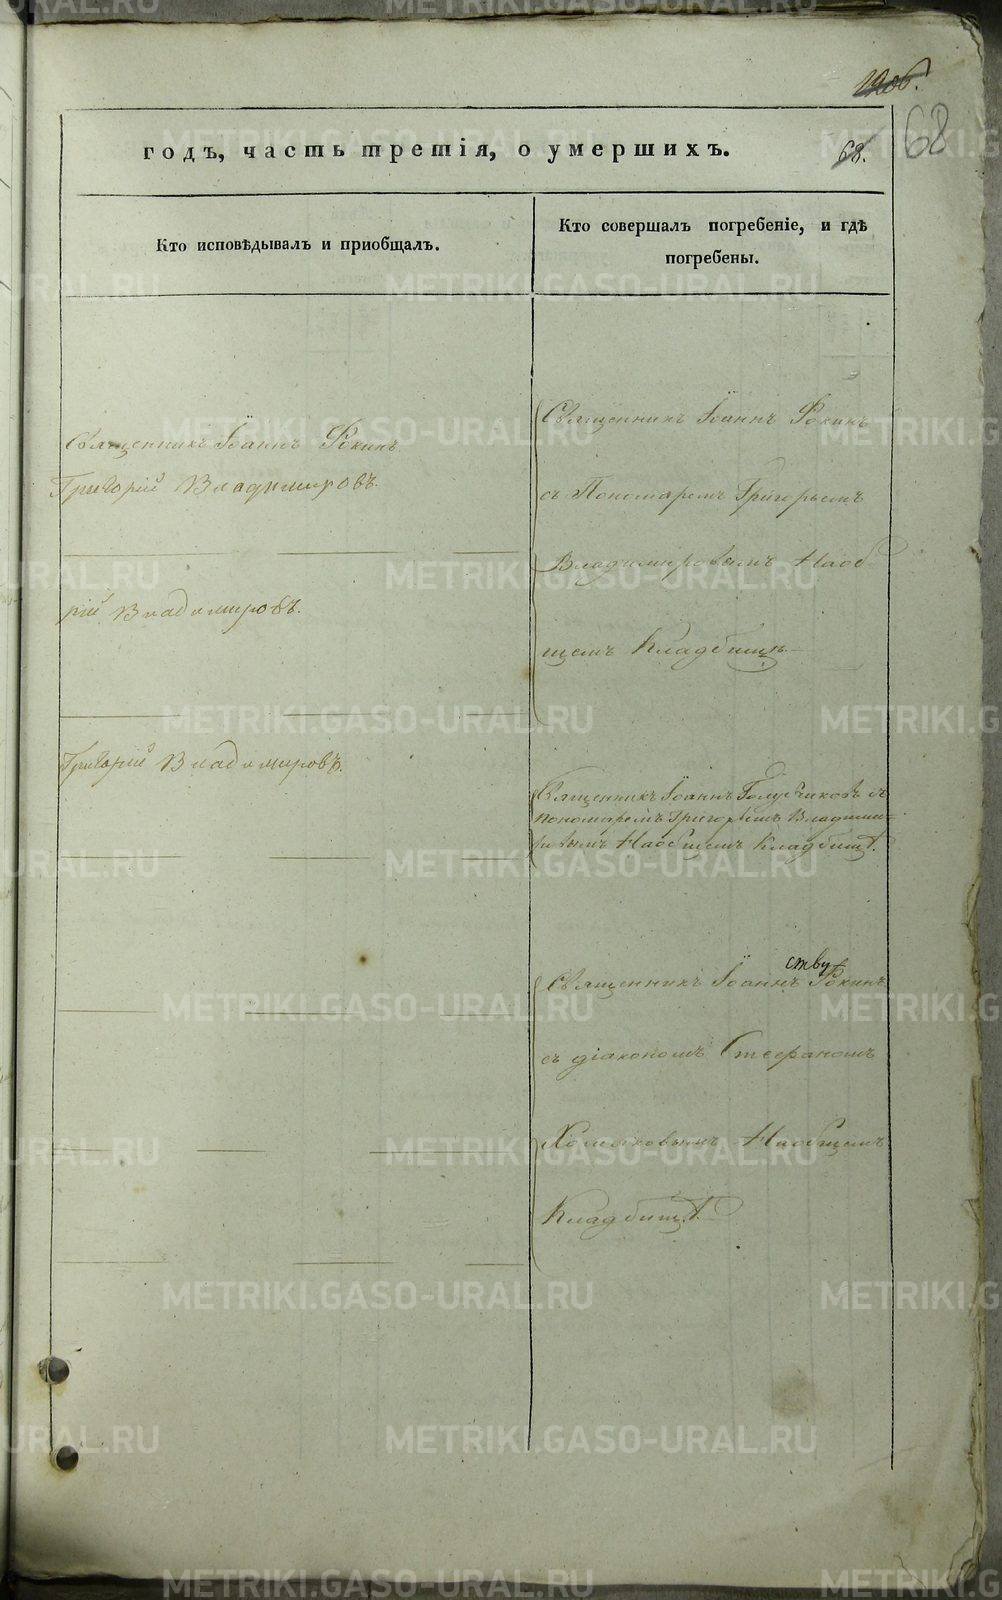 1206.
68
68.
годъ, часть третія, о умершихъ.
Кто исповѣдывалъ и приобщалъ.
Кто совершалъ погребеніе, и гдѣ
погребены.
Священникъ Іоаннъ Фокинъ
Григорій Владимировъ.
рій Владимировъ.
Григорій Владимировъ.
Священникъ Іоаннъ Фокинъ
съ Пономаремъ Григорьемъ
Владимировымъ На об
щемъ Кладбищѣ
Священникъ Іоаннъ Голубчиковъ съ
пономаремъ Григорьемъ Владими-
ровымъ На общемъ Кладбищѣ.
ству
Священникъ Іоаннъ Фокинъ
съ діакономъ Стефаномъ
На общемъ
Кладбищѣ
METRIKI.GASO-URAL.RU